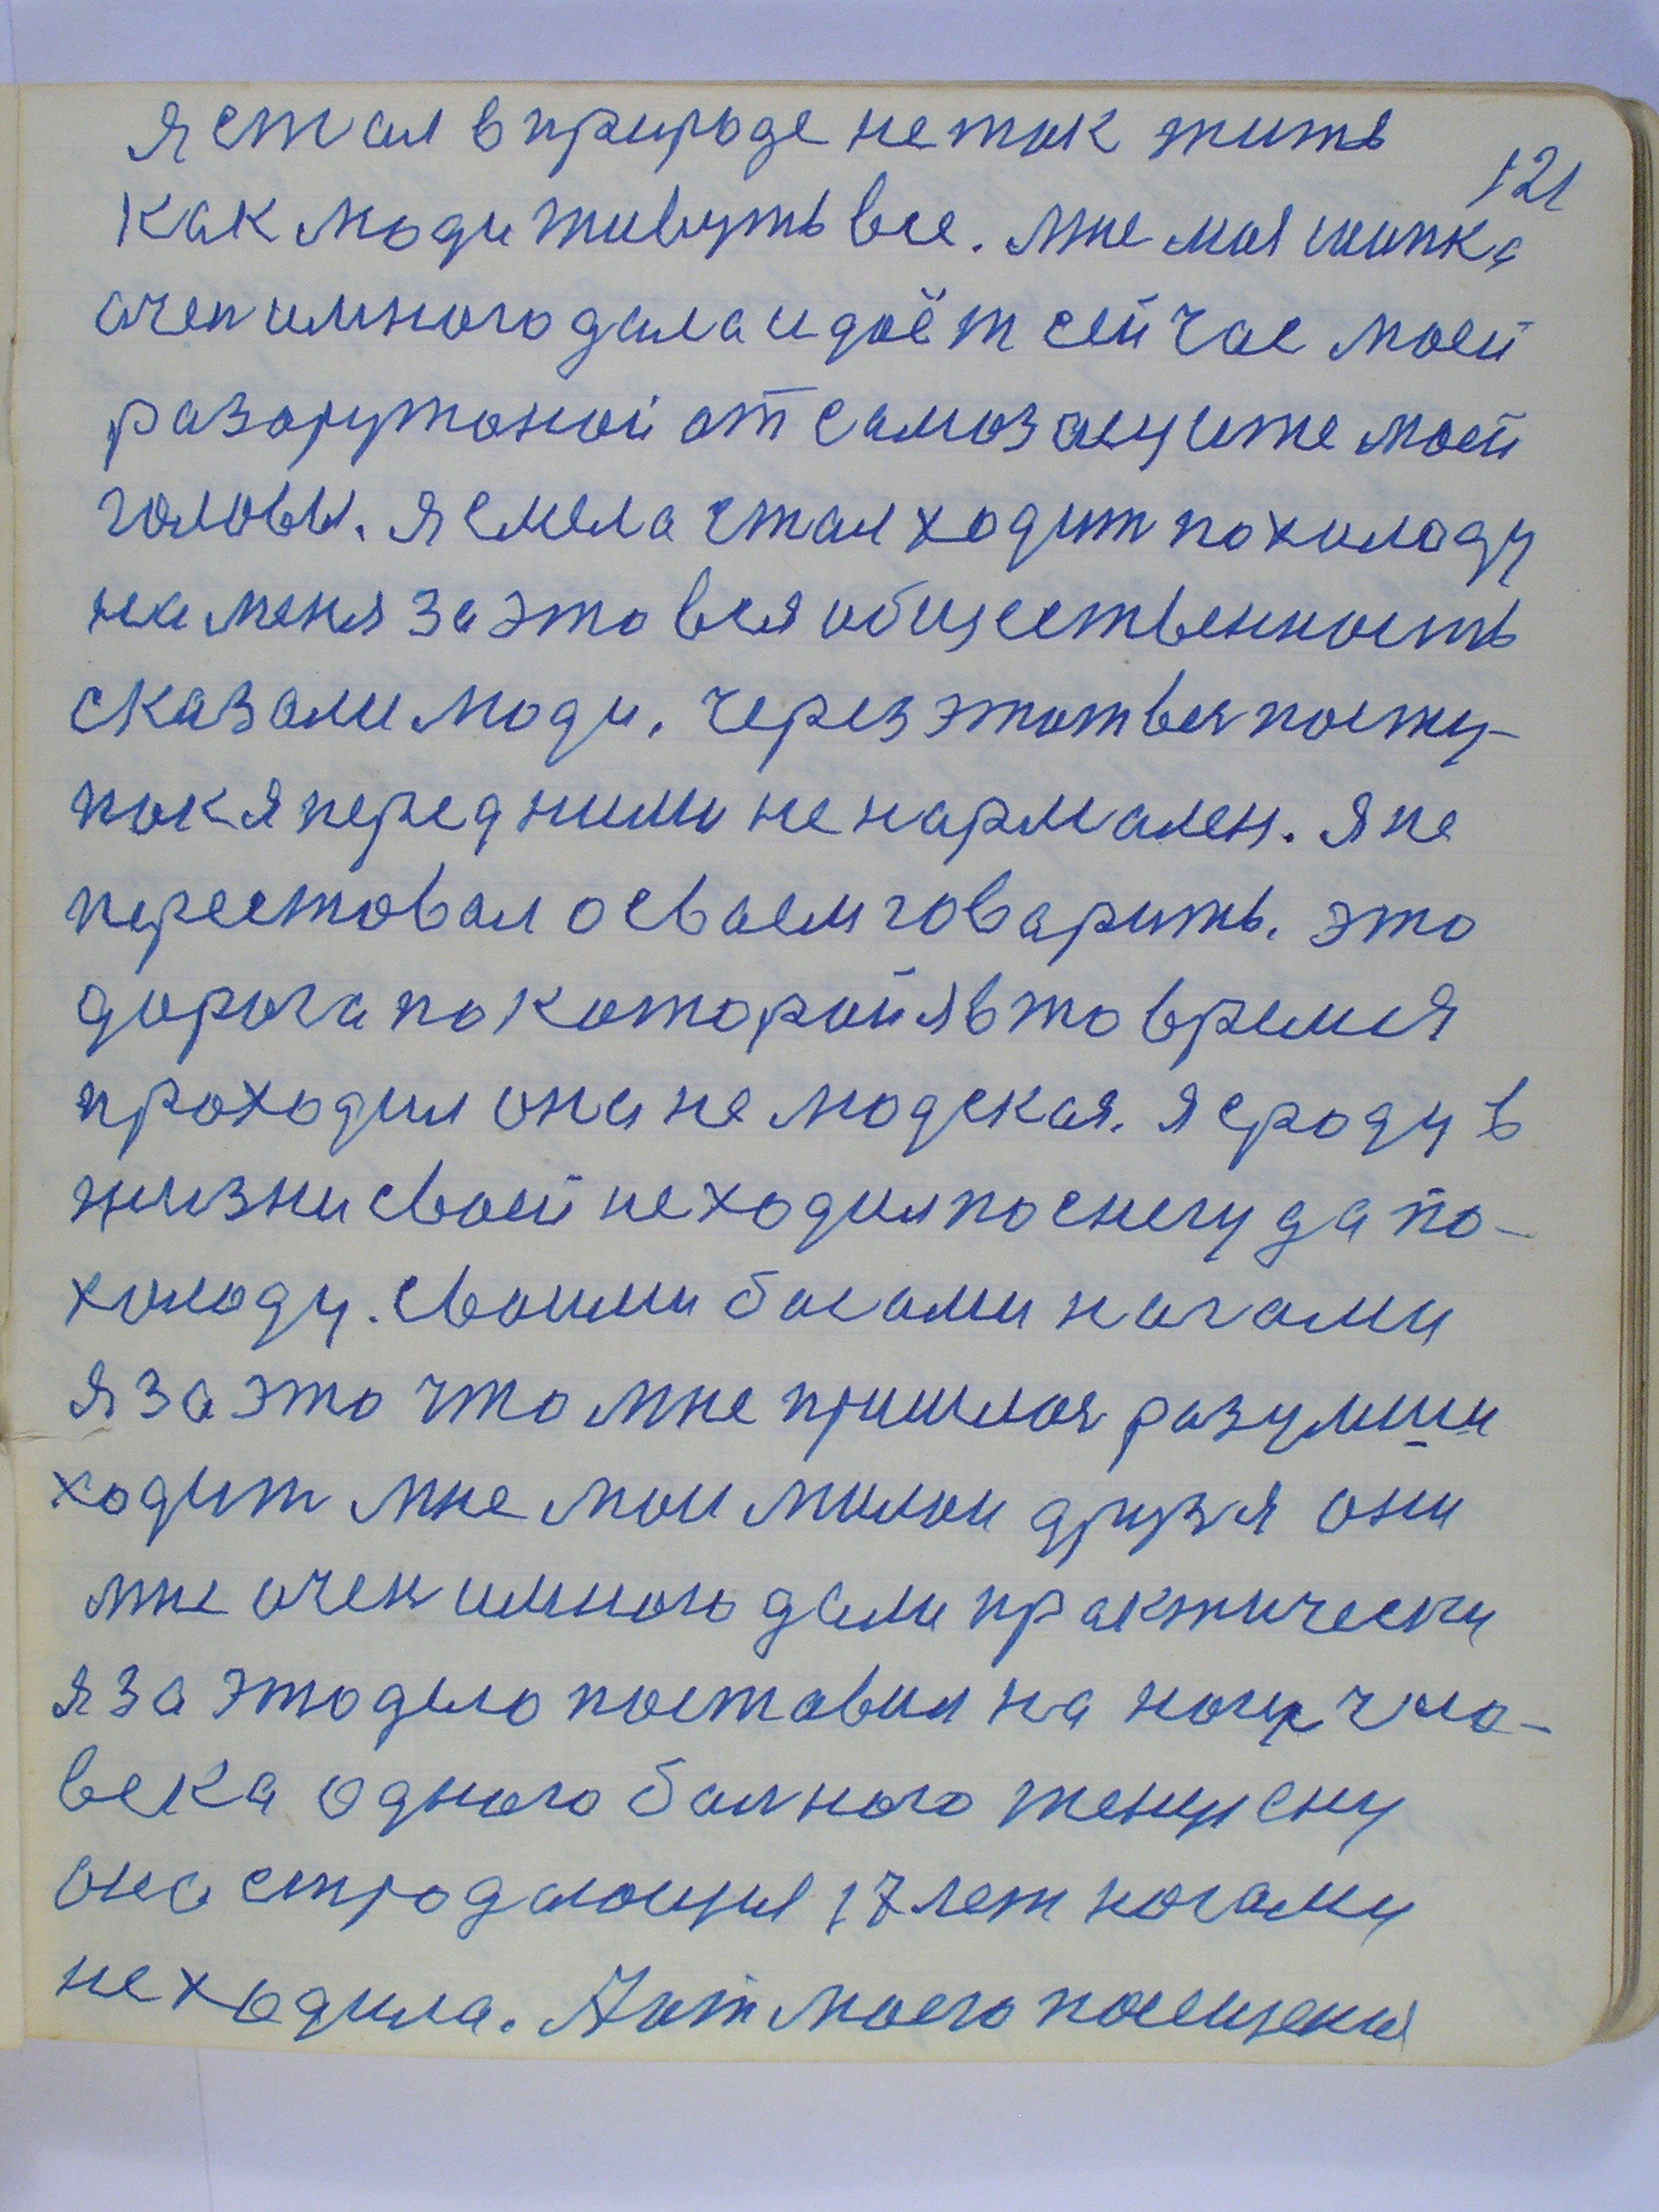 я стал в природе не так жить
121
как люди живуть все. мне моя шапка
очен имного дала и даёт сейчас моей
разоружоной от самозащите моей
головы. я смела стал ходит по холоду
на меня за это вся общественность
сказали люди, через этот вся посту-
пок я перед ними не нармален. я не
перестовал о сваем говарить. это
дорога по которой я в то время
проходил она не людская. я сроду в
жизни своей не ходил по снегу да по-
холоду. своими босами ногами
я за это что мне пришлося разумши
ходит мне мои милои друзя они
мне очен имного дали практически
я за это дело поставил на ноги чило-
века одного болного женщену
она стродающия 17 лет ногами
не ходила. А от моего посещения